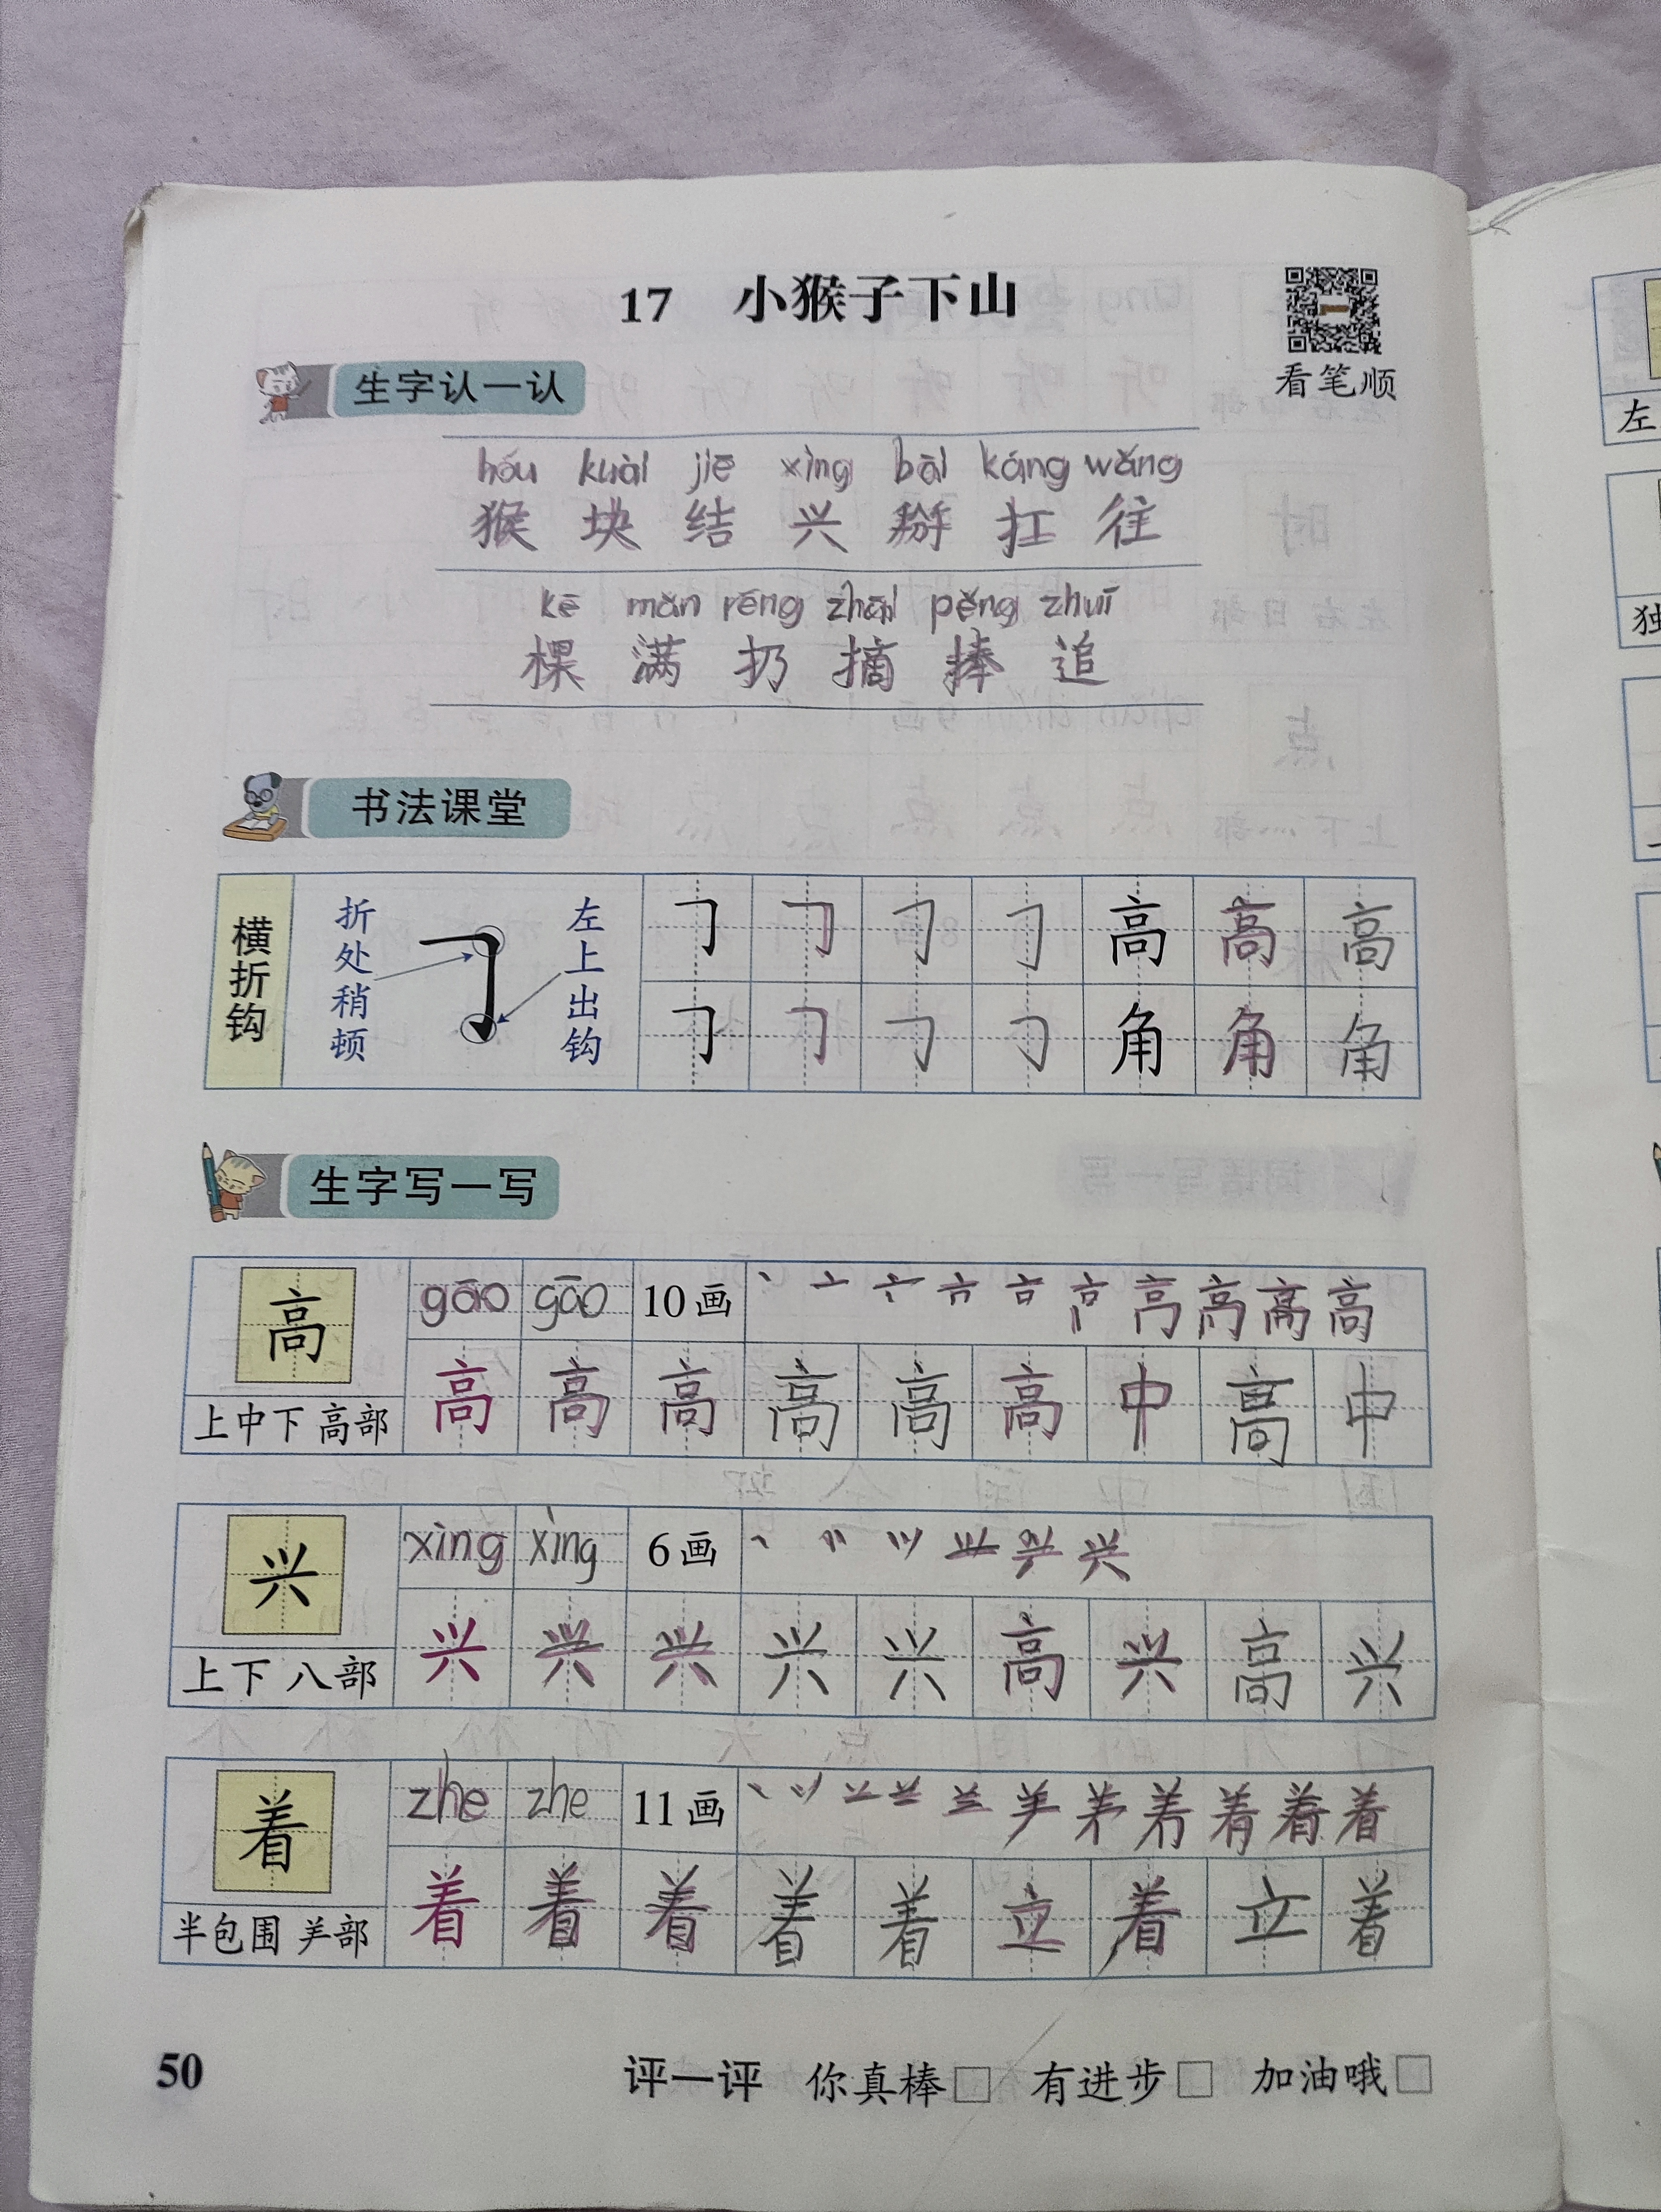 17 小猴子下山
看笔顺
生字认一认
hóu kuài jiē xìng bāi káng wǎng
猴 块 结 兴 掰 扛 往
kē mǎn rēng zhāi pěng zhuī
棵 满 扔 摘 捧 追
书法课堂
横折钩
折处稍顿
左上出钩
𠃌 𠃌 𠃌 𠃌 高 高 高
𠃌 𠃌 𠃌 𠃌 角 角 角
生字写一写
高 gāo gāo 10画
上中下 高部
高 高 高 高 高 高 中 高 中
兴 xìng xìng 6画
上下 八部
兴 兴 兴 兴 兴 高 兴 高 兴
着 zhe zhe 11画
半包围 𦍌部
着 着 着 着 着 立 着 立 着
50 评一评 你真棒□ 有进步□ 加油哦□
左
独